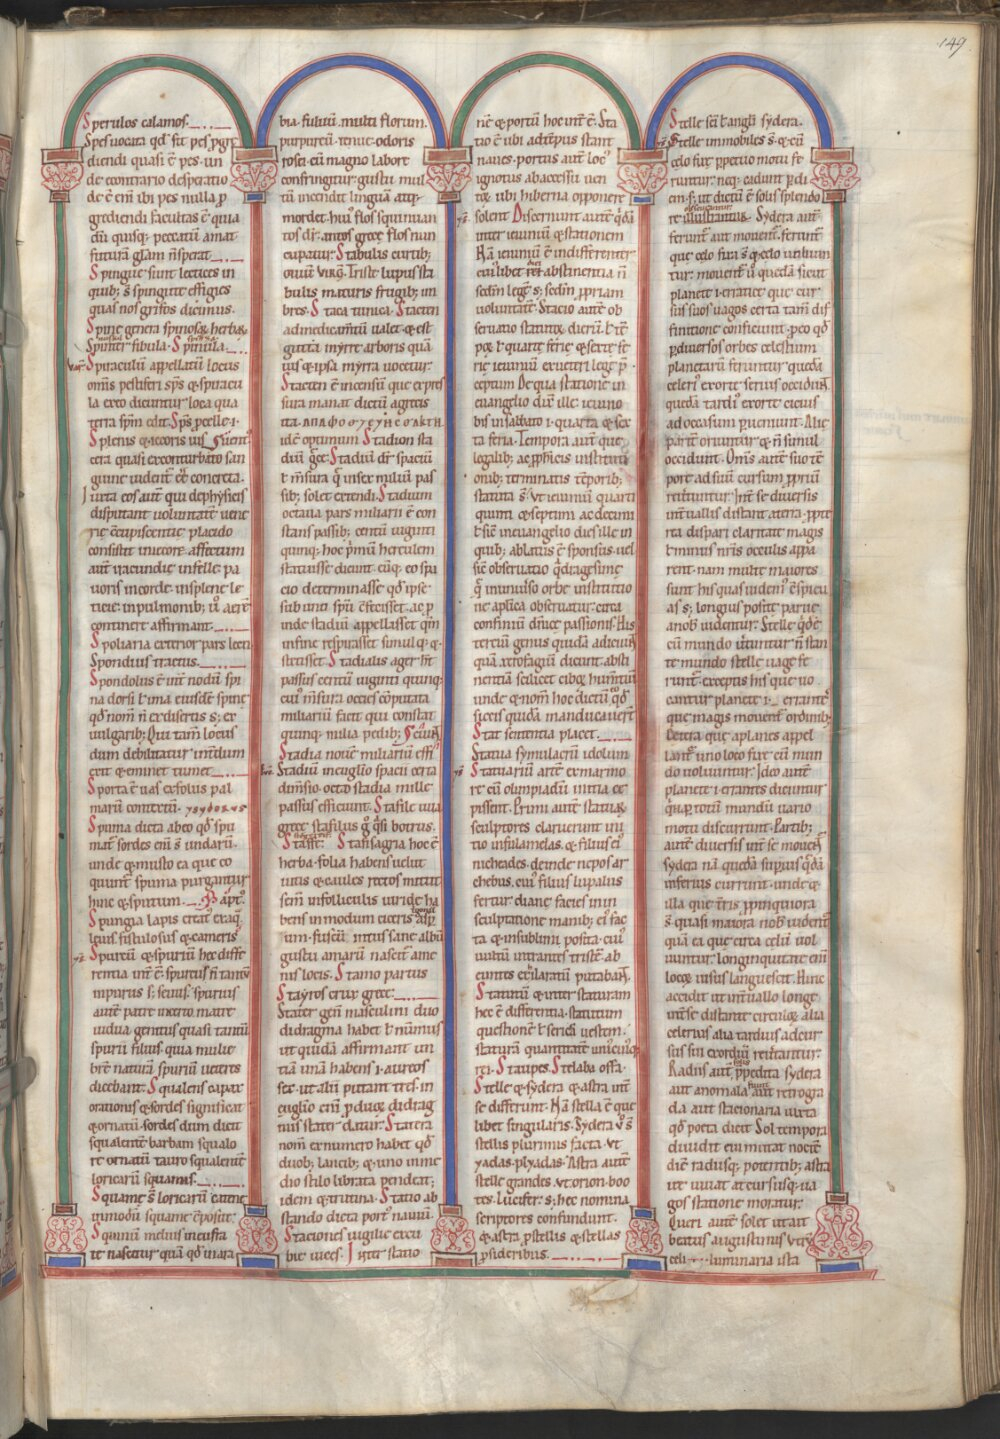 149
Sperulos calamos.
Spes uocata qd sit pes ꝓgre
diendi quasi ē pes. un
de econtrario desperatio
de ē eni ibi pes nulla ꝓ
grediendi facultas ē quia
dū quisq; peccatum amat
futurā głam ñ sperat
Spingue sunt
quib; s̄ spingate effigies
quas nos grifos dicimus.
Spine genera spinosaꝝ herbaꝝ
Spinter fibula. Spinula.
Spiraculum appellatū locus
om̄is pestiferi sps̄ & spiracu
la ereo dicuntur loca qua
terra spm̄ edit. Sps̄ pcelle .i.
Splenis & iecoris uis
cera quasi exconturbato san
guine uident̄ eē concreta.
Iuxta eos aut̄ qui de physicis
disputant uoluntatē uene
rie c̄cupiscentie placido
consistit in iecore. affectum
aut̄ iracundie in felle. pa
uoris in corde. in splene le
ticie. in pulmonib; ū aere
continere affirmant.
Spoliaria exterior pars lecti
Spondius tractus.
Spondolus ē un̄ nodū spi
na dorsi ł ima eiusdē spine
qd̄ nom̄ ñ ex disertis s; ex
uulgarib; Qui tam̄ locus
dum debilitatur
erit & eminet tumet
Sporta ē uas ex folus pal
marū contextū.
Spuma dicta ab eo qd̄ spu
mat̄ sordes eni s̄ undarū.
unde & musto ea que co
quunt̄ spuma purgantur
hinc & sputum.
Spungia lapis creat̄ ex aq̄
leuis fistulosus & cameris
Spurcū & spuriū hoc diffe
rentia int̄ ē spurcus ñ tantū
inpurus s; seuus. spurius
aut̄ patre incerto matre
uidua genitus quasi tantū
spurii filius. quia mulie
brē naturā spuriū ueteres
dicebant. Squalens capax
orationis & sordes significat
& ornatū. sordes dum dicit
squalentē barbam squalo
re ornatū tauro squalentē
loricarū squamis.
Squame s̄ loricarū catene
in modū squame cōposite.
Squinū melius incusta
te nascitur quā qd̄ in ara
bia. fuluū. multi florum.
purpureū. tenue. odoris
rosei. cū magno labore
confringitur. gustu mul
tū incendit linguā atq;
mordet. hui' flos squinuan
tos dr̄. antos grece flos nun
cupatur. Stabulis curtib;
ouiū. Triste lupus sta
bulis maturis frugib; im
bres. Staca tunica. Stacten
ad medicam̄tū ualet & est
gutta myrre arboris quā
uis & ipsa myrra uocetur.
Stacten ē incensū que expres
sura manat dictū agrecis
idē optimum. Stadion sta
diū grē. Stadiū dr̄ spaciū
ł m̄sura q̄ infer miliū pas
sib; solet extendi. Stadium
octaua pars miliarii ē con
stans passib; centū uiginti
quinq; hoc p̄mū herculem
statuisse dicunt. eūq; eo spa
cio determinasse qd̄ ipse
sub uno spū c̄fecisset. ac ꝓ
inde stadiū appellasset qm̄
in fine respirasset simul q; &
stetisset. Stadialis ager h̄t
passus centū uiginti quinq;
cui' m̄sura octies cōputata
miliariū facit qui constat
quinq; milia pedib;
Stadia noue miliariū effi
Stadiū in euglio spacii certa
dim̄sio. octo stadia mille
passus efficiunt. Stafile uua
grece stafilus g̊ q̄si botrus.
Staffe. Stafisagria hoc ē
herba. folia habens uelut
uitis & caules rectos mittit
sem̄ in folliculis uiride ha
bens in modum ciceris asp
um. fuscū. intus sane albū
gustu amarū nascit̄ ame
nis locis. Stamo partus
Stayros crux grece.
Stater gen̄ masculini duo
didragma habet ł nūmus
ut quidā affirmant un
tiā unā habens .i. aureos
sex. ut alii putant tres. in
euglio eni ꝓ duoꝝ didrag
mis stater datur. Statera
nom̄ ex numero habet qd̄
duob; lancib; & uno in me
dio stilo librata pendeat;
idem & trutina. Statio ab
stando dicta port' nauiū.
Staciones uigilie excu
bie uices. Inter statio
nē & portū hoc int̄ ē. Sta
tio ē ubi ad tēpus stant
naues. portus aut̄ loc'
ignotus ab accessu uen
toꝝ ubi hiberna opponere
solent. Discernunt aut̄ q̄dā
inter ieiuniū & stationem
Nā ieiuniū ē indifferenter
cui'libet abstinentia ñ
sedm̄ legē s; sedm̄ ꝓpriam
uoluntatē. Stacio autē ob
seruatio statutoꝝ dierū. ł tē
poꝝ ł quarte ferie & sexte fe
rie ieiuniū ex ueteri lege p̄
ceptum. De qua statione in
euangelio dixᵗ ille. ieiuno
bis in sabbato .i. quarta & sex
ta feria. Tempora autē que
legalib; ac ꝓpheticis instituti
onib; terminatis tēporib;
statuta s̄. Ut ieiuniū quarti
quinti & septimi ac decimi
ł sic in euangelio dies ille in
quib; ablatus ē sponsus. uel
sic obseruatio q̄dragesime
q̄ in uniuso orbe institutio
ne aplica obseruatur. circa
confiniū dn̄ice passionis. His
tercium genus quidā adiciūt
quā xerofagiū dicunt. absti
nentiā scilicet ciboꝝ humentiū
unde & nom̄ hoc dictū qd̄
siccis quidā manducauerit.
Stat sententia placet.
Statua symulacrū idolum
Statuariū artē ex marmo
re cū olimpiadū initia ce
pissent. Primi autē statuaꝝ
sculptores claruerunt ini
tio insulamelas. & filius ei'
micheades. deinde nepos ar
chebus. eui' filius lupalus
fertur diane facies in in
sculptatione manib; ei' fac
ta & in sublimi posita. cui'
uultū intrantes tristē. ab
euntes exilaratū putabant.
Statutū & inter staturam
hec ē differentia. statutum
questionē ł serici uestem.
staturā quantitatē unicuiq;
rei. Staupes. Stelabu offa.
Stelle & sydera & astra int̄
se differunt. Nā stella ē que
libet singularis. Sydera ū s̄
stellis plurimis facta. ut
yadas. plyadas. Astra autē
stelle grandes. ut orion. boo
tes. Lucifer. s; hec nomina
scriptores confundunt.
& astra ꝓ stellis & stellas
ꝓ sideribus.
Stelle sc̄i ł angli sydera.
Stelle immobiles s̄ & cū
celo fixe ꝑpetuo motu fe
runtur. neq; cadunt ꝑ di
em. s; ut dictū ē solis splendo
re illustrantur. Sydera aut̄
ferunt̄ aut mouent̄. ferunt̄
que celo fixa s̄ & celo uoluun
tur. mouent̄ ū quedā sicut
planete .i. erratice que cur
sus suos uagos certa tam̄ dif
finitione conficiunt. ꝓ eo qd̄
ꝑ diuersos orbes celestium
planetarū feruntur. quedā
celeri' exorte seri' occidunt.
quedā tardi' exorte cicius
ad occasum ꝑueniunt. Alie
pariē oriuntur & ñ simul
occidunt. Om̄s autē suo tē
pore ad suū cursum ꝓpriū
reuertuntur. Int̄ se diuersis
int̄uallis distant a terra. ꝓpte
rea dispari claritate magis
ł minus nr̄is occulis appa
rent. nam multe maiores
sunt his quas uidem' cspicu
as s; longius posite parue
a nob uidentur. Stelle qd̄ē
cū mundo ūtuntur ñ stan
te mundo stelle uage fe
runt. exceptis his que uo
cantur planete .i. errantes
que magis mouent̄ ordinib;
Cetera que aplanes appel
lant̄ uno loco fixe cū mun
do uoluuntur. Ideo autē
planete .i. errantes dicuntur
q̄ ꝑ totū mundū uario
motu discurrunt. Partib;
autē diuersis int̄ se mouent̄
sydera nā quedā supius q̄dā
inferius currunt. unde &
illa que t̄ris ꝓpinquiora
s̄ quasi maiora nob uident̄
quā ea que circa celū uol
uuntur. longinquitate eni
locoꝝ uisus languescit. Hinc
accidit ut int̄uallo longe
int̄ se distantᵉ circuloꝝ alia
celerius alia tardius ad cur
sus sui exordiū reuertantur.
Radiis aut̄ p̄pedita sydera
aut anomala fiunt aut retrogra
da aut stacionaria iuxta
qd̄ poeta dicit. Sol tempora
diuidit eui mutat noctē
diē radiisq; potentib; astra
ire uetat at cursusq; ua
gos statione moratur.
Queri autē solet ut ait
beatus augustinus utrū
celi luminaria ista